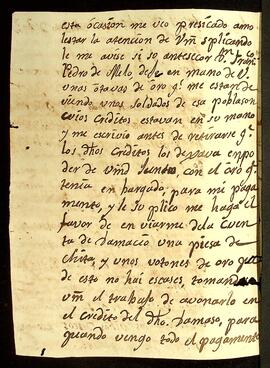 esta ocasion me veo presicado amo
lestar la atencion de Vm suplicando
le me avise si su antessor Dn Fran
Pedro de Melo, deje en mano de V.
unas otavas de oro q.e me estan de
viendo unos soldados de esa poblason
cuios creditos estavan en su mano
y me escrivio antes de retirarse q.e
los dhos creditos los dexava en po
der de Vm Juntto con el oro q.e
tenia enbargado, para mi paga
mento, y le suplico me haga el
favor de en viarme de la Cuen
ta de Damacio una piesa de
chita, y unos votones de oro que
de esto no hai escases, tomando
Vm el trabajo de avonarlo en
el credito del dho. Damaso, para
quando vengo todo el pagamento